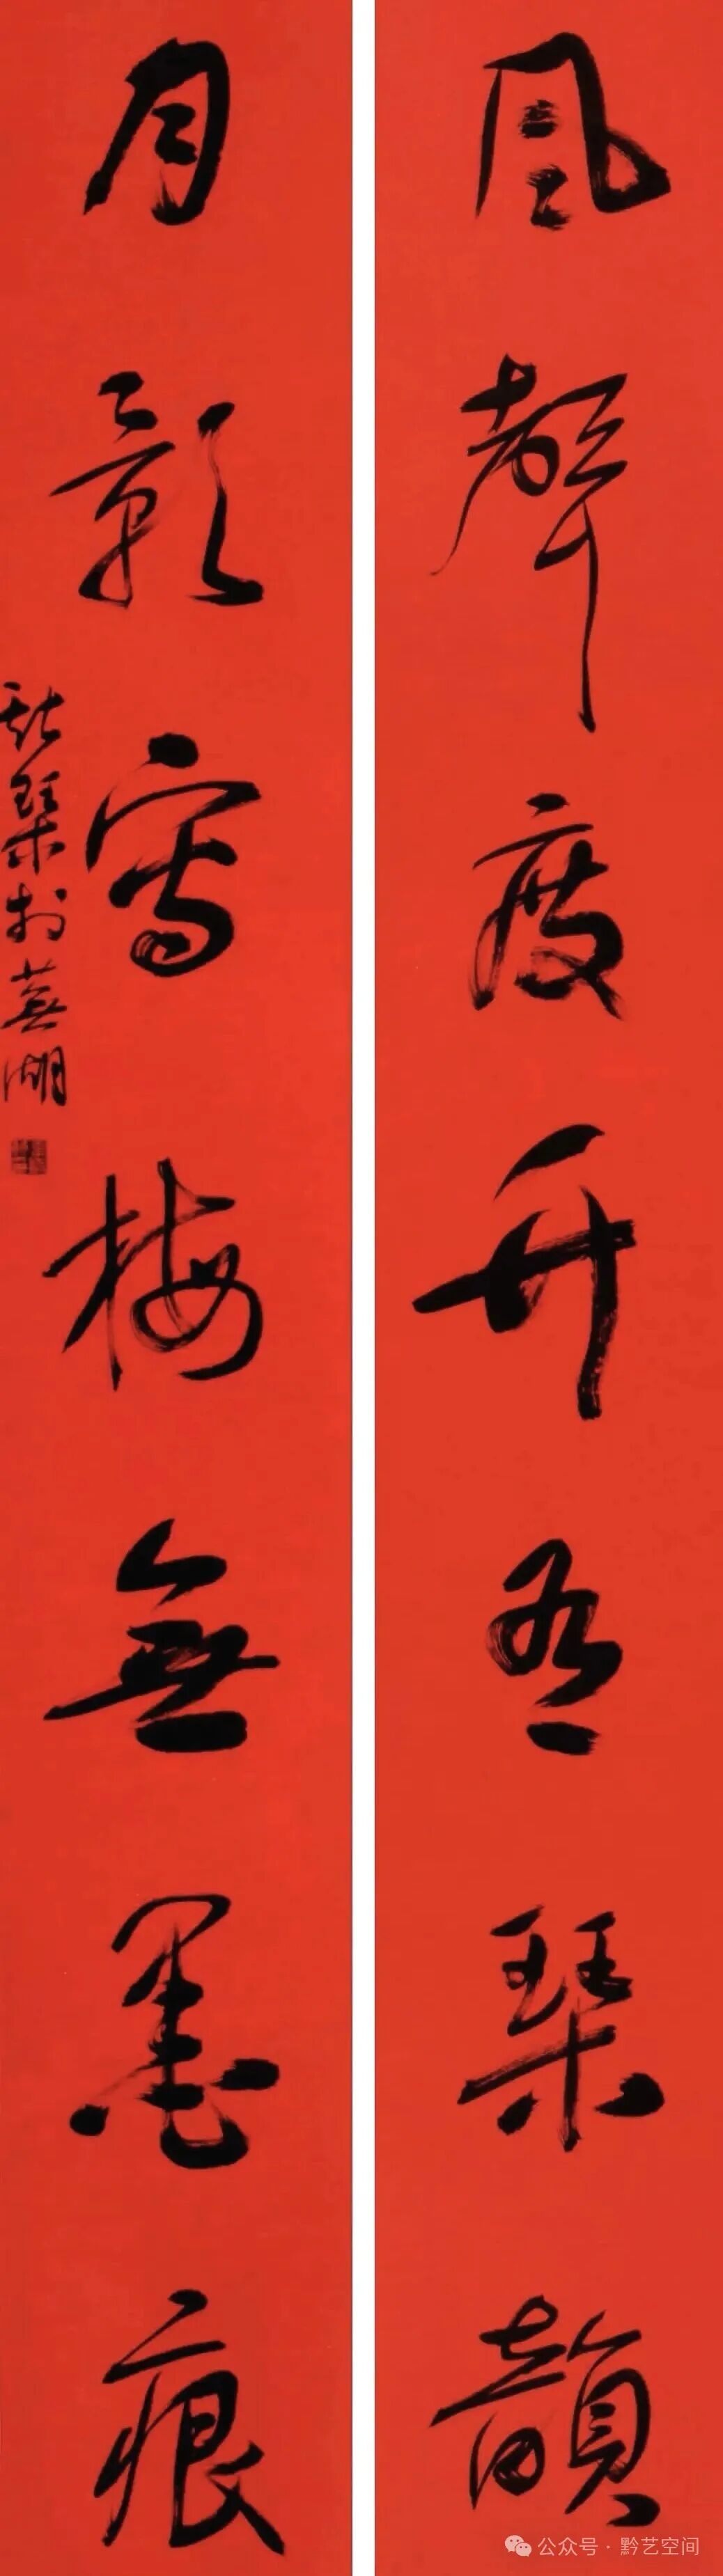 風聲度竹有琴韻
月影寫梅無墨痕
琴於蕪湖
公众号·黔艺空间